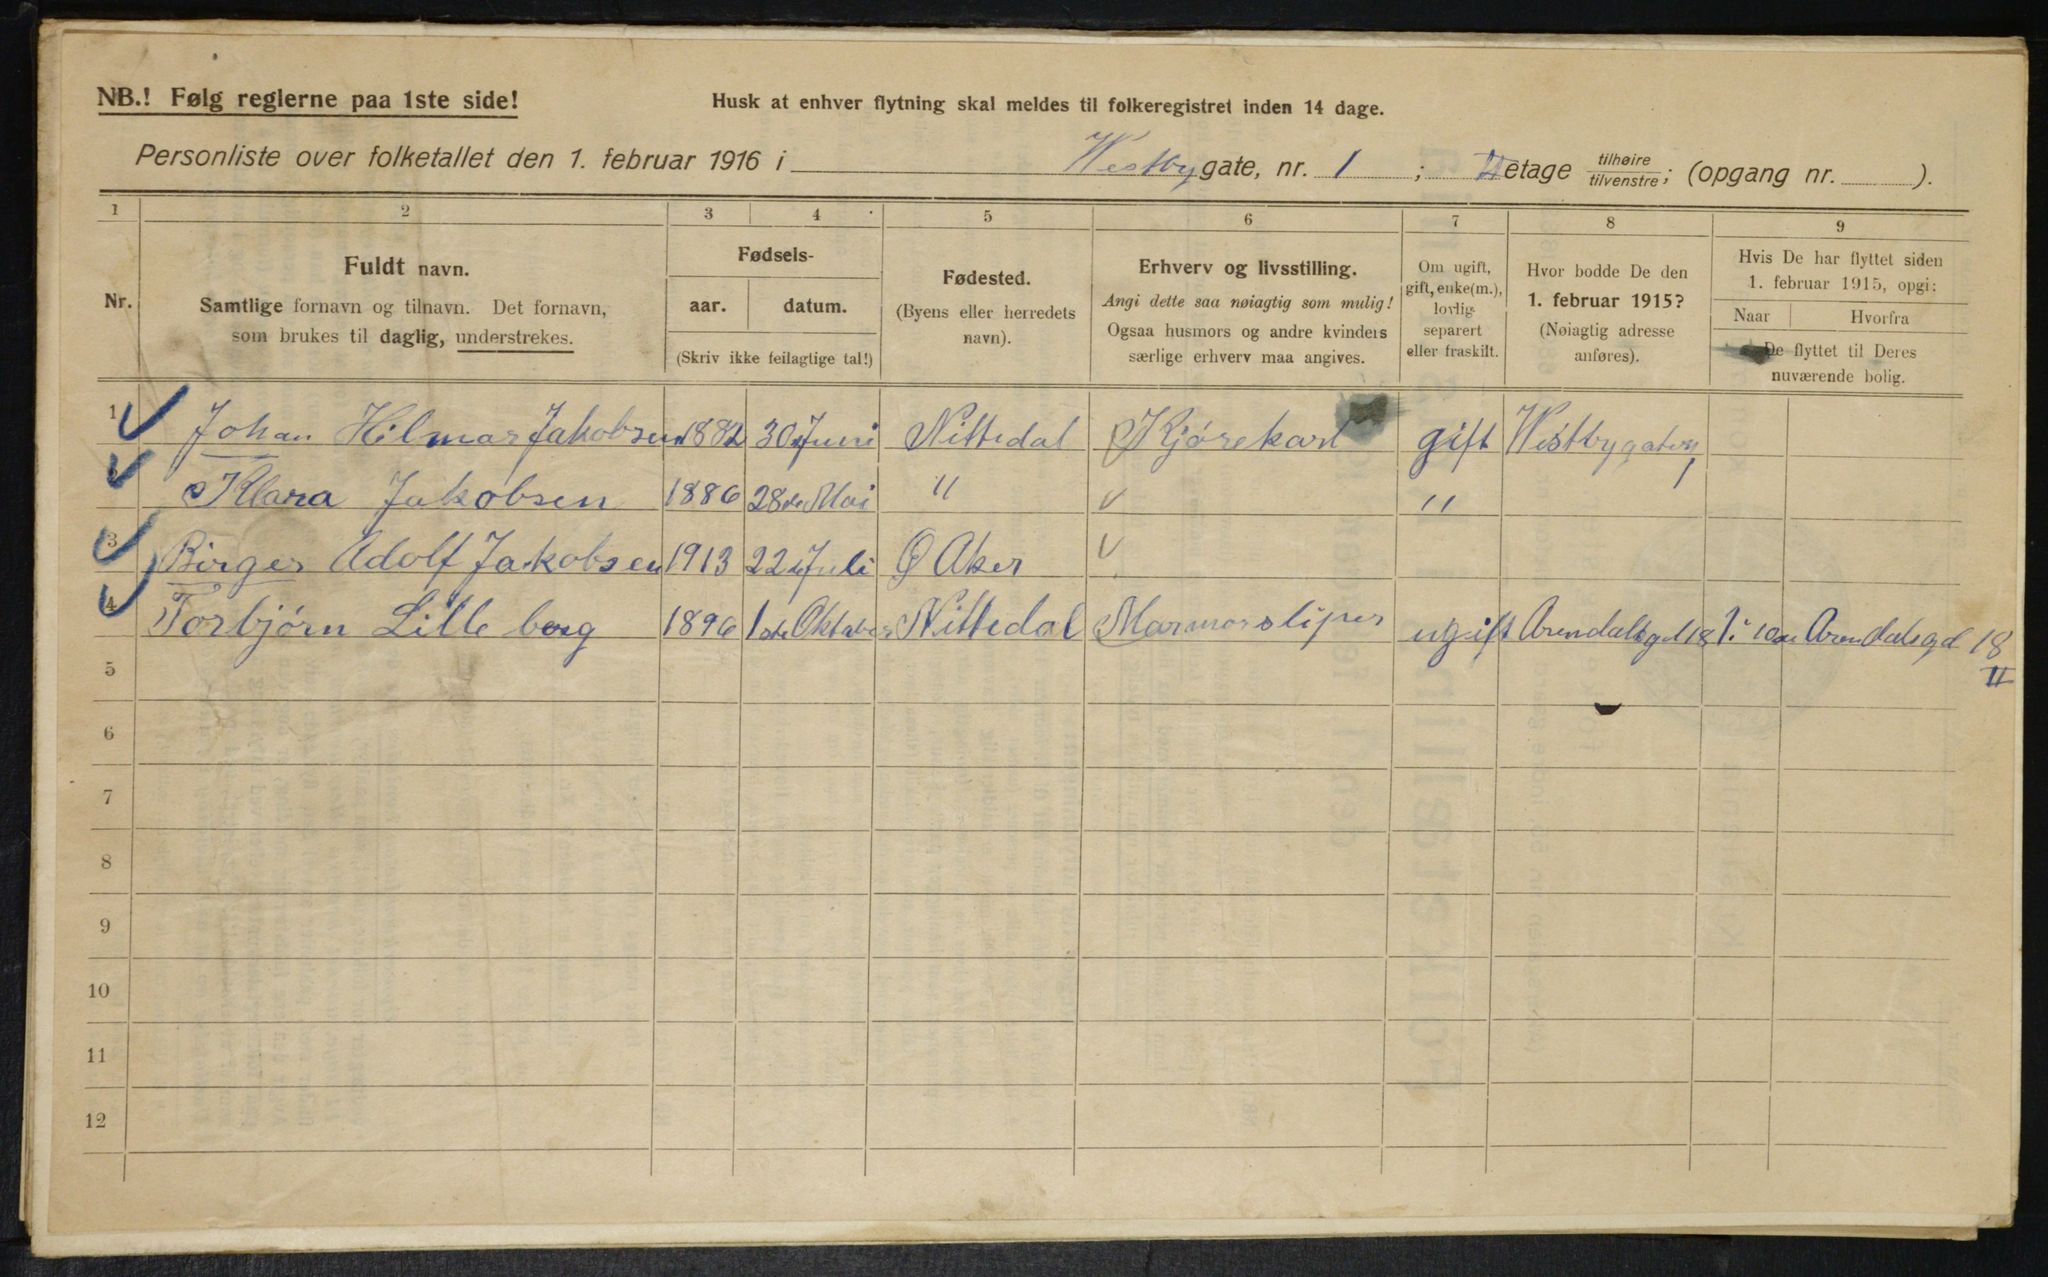 NB.! Følg reglerne paa 1ste side!
Husk at enhver flytning skal meldes til folkeregistret inden 14 dage.
Personliste over folketallet den 1. februar 1916 i Westby gate, nr. 1 ; II etage tilhøire tilvenstre; (opgang nr. ).
1 2 3 4 5 6 7 8 9
Nr.
Fuldt navn.
Samtlige fornavn og tilnavn. Det fornavn,
som brukes til daglig, understrekes.
Fødsels-
aar. datum.
(Skriv ikke feilagtige tal!)
Fødested.
(Byens eller herredets
navn).
Erhverv og livsstilling.
Angi dette saa nøiagtig som mulig!
Ogsaa husmors og andre kvinders
særlige erhverv maa angives.
Om ugift,
gift, enke(m.),
lovlig
separert
eller fraskilt.
Hvor bodde De den
1. februar 1915?
(Nøiagtig adresse
anføres).
Hvis De har flyttet siden
1. februar 1915, opgi:
Naar Hvorfra
De flyttet til Deres
nuværende bolig.
1 Johan Hilmar Jakobsen 1882 30 Juni Nittedal Kjørekarl gift Westbygaten 1
Klara Jakobsen 1886 28de Mai " "
3 Birger Adolf Jakobsen 1913 22 Juli Ø Aker
4 Torbjørn Lilleberg 1896 1ste Oktober Nittedal Marmorsliper ugift Arendalsgd 18 Arendalsgd 18
II
5
6
7
8
9
10
11
12